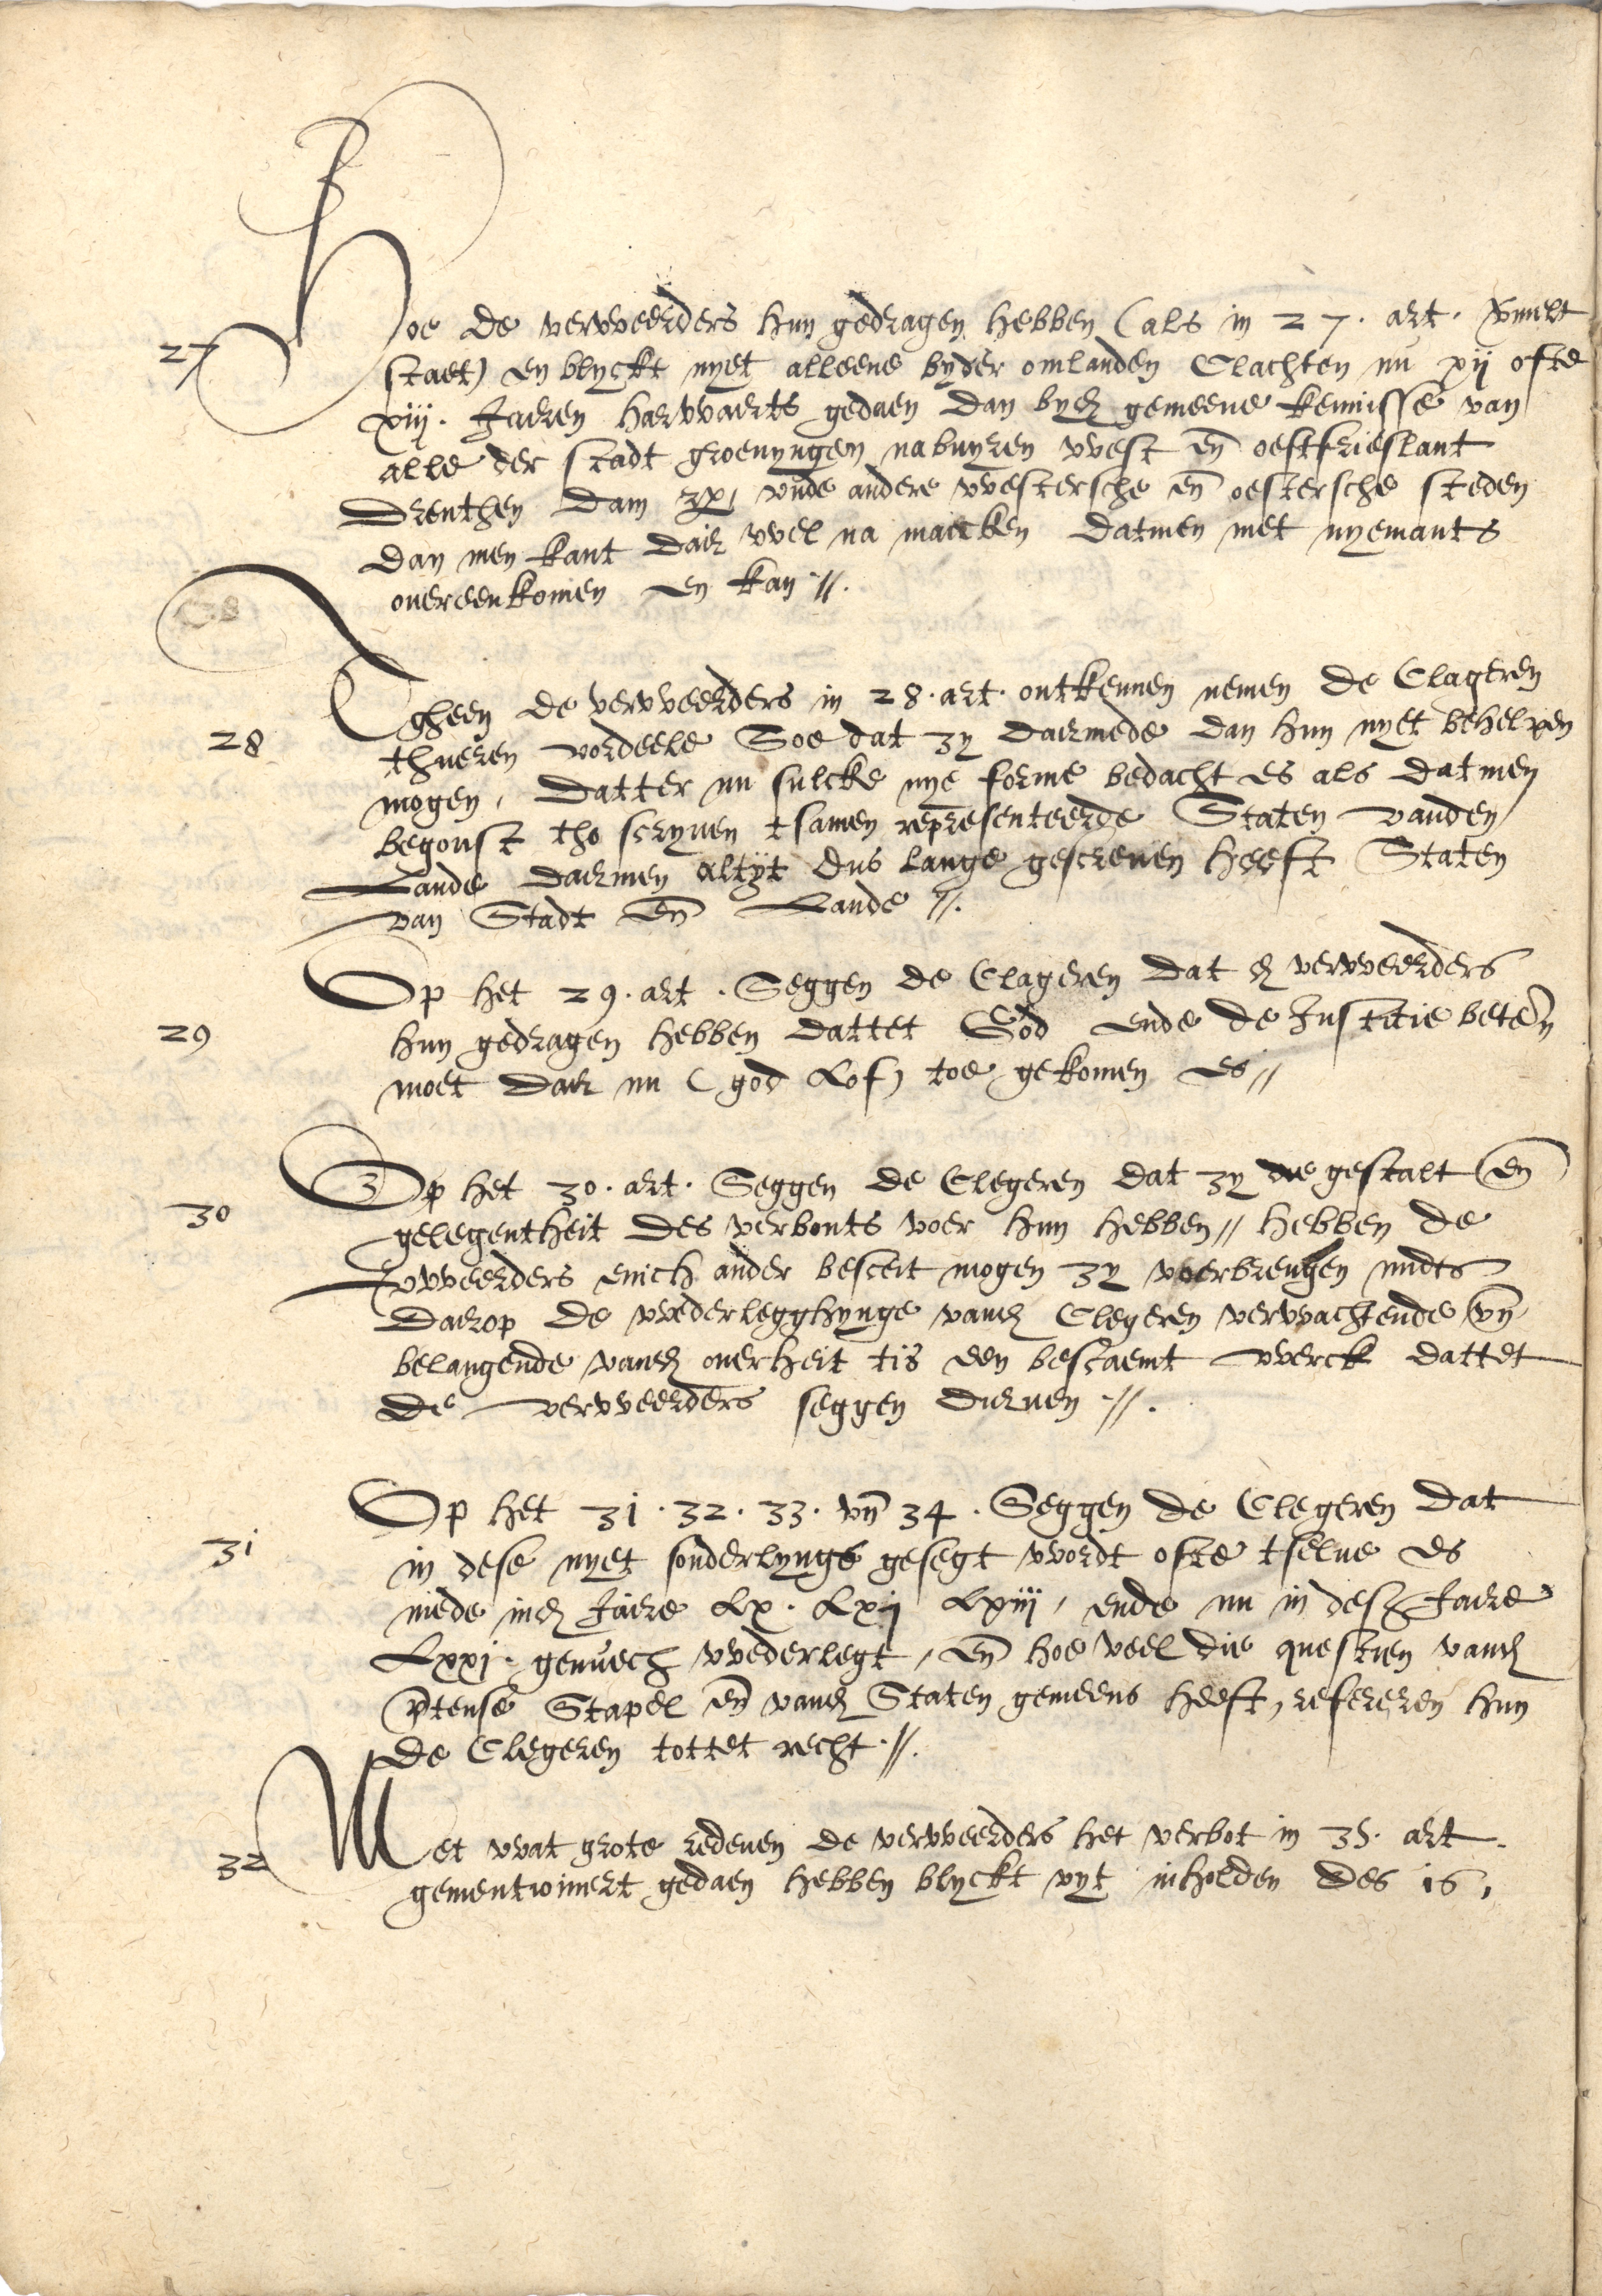 27 Hoe de verweerders hun gedragen hebben (als in 27. art. vermelt
staet) en blyckt nyet alleene byder omlanden Clachten nu xij ofte
xiij. Jaeren harwaerts gedaen dan byd gemeene kennisse van
alle der stadt groenyngen nabuyren west en̄ oestfrieslant
Drenthen Dam vnde andere westersche en̄ oestersche steden
dan men kant daer wel na maecken datmen met nyemants
ouereenkomen en kan //.
28 Tgheen de verweerders in 28. art. ontkennen nemen de Clageren
thueren vordeele Soe dat zy daermede dan hun nyet behelpen
mogen, datter nu sulcke nye forme bedacht es als datmen
begonst tho scryuen tsamen representeerde Staten vanden
Lande daermen altyt dus lange gescreuen heeft Staten
van Stadt en̄ Lande //.
29 Op het 29. art. Seggen de Clageren dat d verweerders
hun gedragen hebben dattet God ende de Justitie beteren
moet daer nu (god lof) toe gekomen es //
30 Op het 30. art. Seggen de Clegeren dat zy die gestalt en̄
gelegentheit des verbonts voer hun hebben // hebben de
verweerders enich ander besceit mogen zy voerbrengen midts
daerop de wederlegghynge vand Clegeren verwachtende vn̄
belangende vand ouerheit tis een bescaemt werck dattet
de verweerders seggen dueruen //.
31 Op het 31. 32. 33. vn̄ 34. Seggen de Clegeren dat
in dese nyet sonderlyngs gesegt wordt ofte tselue es
mede ind Jaere Lx. Lxij Lxiij, ende nu in des Jaere
Lxxj. genuech wederlegt, en̄ hoe veel die questien vand
p̄tense Stapel en̄ vand Staten gemeens heeft, refereren hun
de Clegeren tottet recht //.
32 Met wat grote redenen de verweerders het verbot in 35. art.
gementioneert gedaen hebben blyckt vyt inholden des 16,